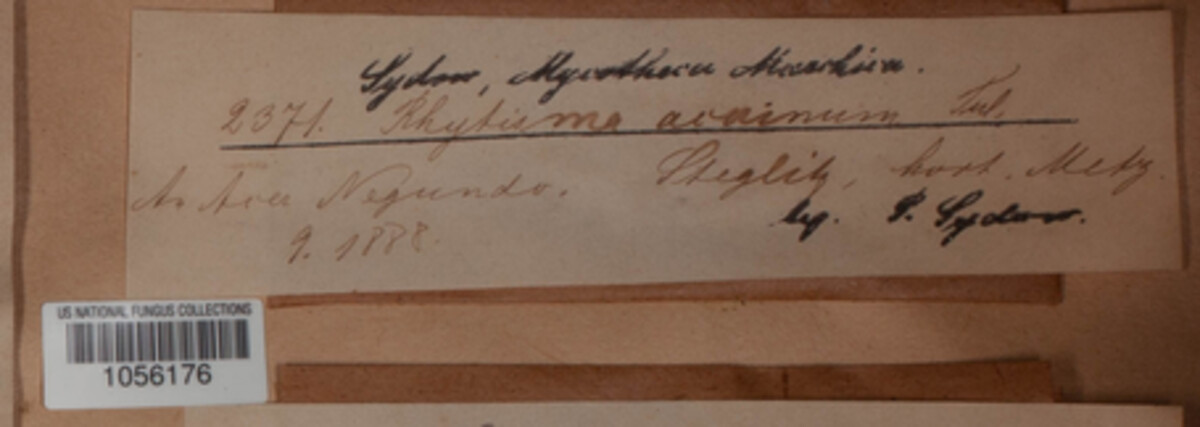 Sydow, Mycotheca Marchica.
2371. Rhytisma acerinum Tul.
Steglitz, hort. Metz.
An Acer Negundo.
leg. P. Sydow.
9. 1888.
US NATIONAL FUNGUS COLLECTIONS
1056176